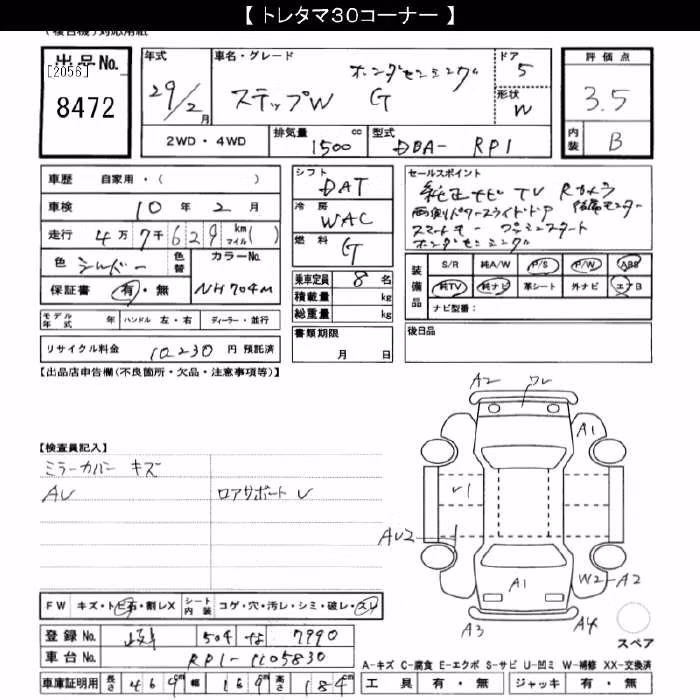 【 トレタマ30コーナー 】
(複合機)対応用紙
出品No.
[2056]
8472
年式
29/2月
車名・グレード
ホンダセンシング
ステップW G
ドア
5
形状
W
評価点
3.5
内装
B
2WD・4WD
排気量
1500
cc
型式
DBA- RP1
車歴 自家用・( )
車検 10年 2月
走行 4万7千629 km マイル( )
色 シルバー
色替
カラーNo.
NH704M
保証書 有・無
モデル年式 年
ハンドル 左・右
ディーラー・並行
リサイクル料金 10,230 円 預託済
シフト
DAT
冷房
WAC
燃料
G
乗車定員 8 名
積載量 kg
総重量 kg
書類期限
月 日
セールスポイント
純正ナビ TV Rカメラ
両側パワースライドドア
スマートキー
ホンダセンシング
装備品
S/R 純A/W P/S P/W ABS
純TV 純ナビ 革シート 外ナビ エアB
ナビ型番:
後日品
【出品店申告欄(不良箇所・欠品・注意事項等)】
【検査員記入】
ミラーカバー キズ
AU
ロアサポート U
A2
ワレ
A1
U1
AU2
A1
W2-A2
A3
A4
スペア
FW キズ・トビ石・割レX
シート内装 コゲ・穴・汚レ・シミ・破レ・スレ
登録No. 504 な 7990
車台No. RP1-1105830
車庫証明用 長さ 469cm 幅 169cm 高さ 184cm
A-キズ C-腐食 E-エクボ S-サビ U-凹ミ W-補修 XX-交換済
工具 有・無 ジャッキ 有・無